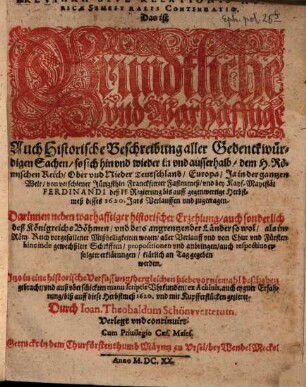 RICÆ SEMESTRALIS CONTINVATIO,
Das ist
Eph. pol. 28
Gründtliche
vnd Warhafftige
Auch Historische Beschreibung aller Gedenckwür-
digen Sachen / so sich hin vnd wieder in vnd ausserhalb / dem H. Rö-
mischen Reich / Ober vnd Nieder Teutschland / Europa / Ja in der gantzen
Welt / von verschiener Jüngsthin Franckfurter Fastenmeß / vnd bey Kays. Maystät
FERDINANDI deß II Regierung biß auff gegenwertige Herbst-
meß dieses 1620. Jars Verlauffen vnd zugetragen.
Darinnen neben warhafftiger historischer Erzehlung / auch sonderlich
deß Königreichs Böhmen / vnd dero angrentzender Länder so wol / als im
Röm. Reich vorgefallener Mißhelligkeiten wegen / aller Verlauff vnd von Chur vnd Fürsten
hinc inde gewechselter Schrifften / propositionen vnd anbringen / auch respective er-
folgter erklärungen / klärlich an Tag gegeben
werden.
gebracht / vnd biß auff diese Herbstmeß 1620. vnd mit Kupfferstücken gezieret /
Durch Ioan. Theobaldum Schönvvetterum.
Verlegt vnd continuirt.
Cum Privilegio Cæs. Maiest.
Getruckt in dem Churfürstenthumb Mäyntz zu Vrsel / bey Wendel Meckel
Anno M. DC. XX.